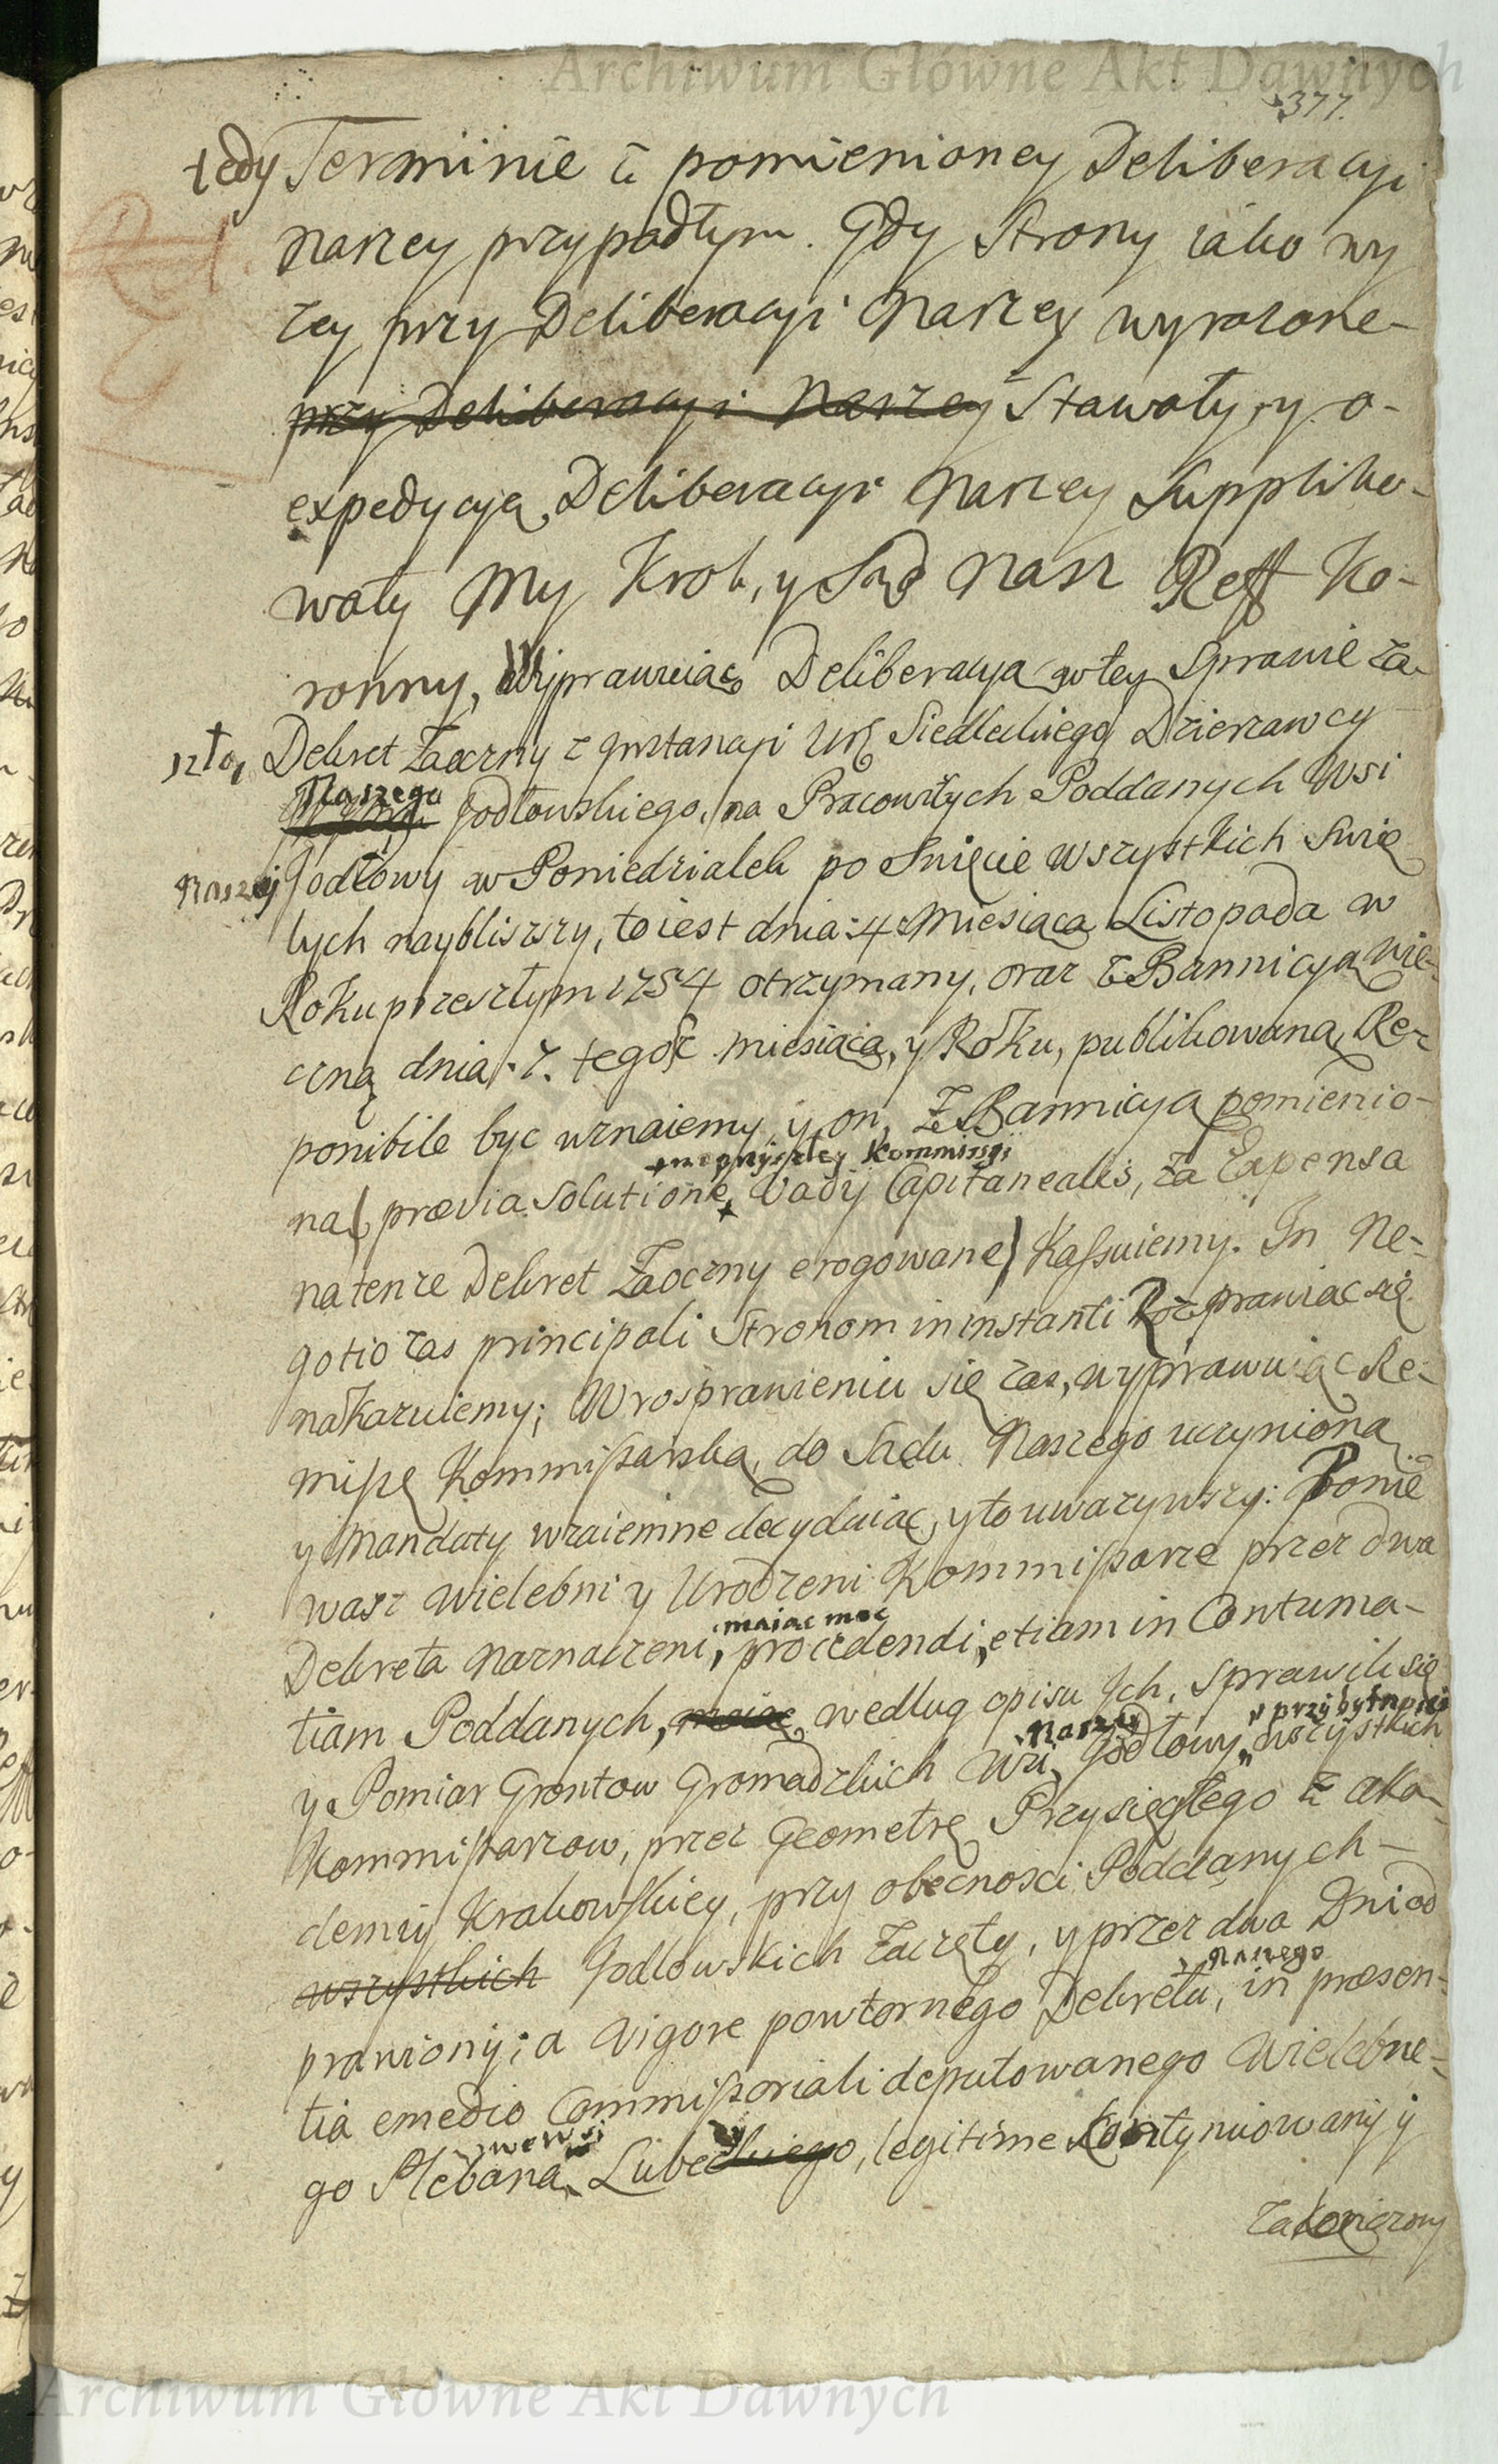 Archiwum Główne Akt Dawnych
377.
tedy Terminie z pomienioney Deliberacyi
naszey przypadłym. Gdy Strony iako wy
zey przy Deliberacyi Naszey wyrazone-
przy Deliberacyi Naszey Stawały, y o-
expedycyą Deliberacyi Naszey Suppliko-
wały My Krol, y Sąd Nasz Reff Ko-
ronny, Wyprawuiąc Deliberacyą w tey Sprawie za-
szłą, Dekret Zaoczny z instancyi Ur Siedleckiego Dzierzawcy
Naszego Jodłowskiego, na Pracowitych Poddanych Wsi
Naszej Jodłowy w Poniedziałek po Święcie Wszystkich Swię
tych naybliszszy, to iest dnia: 4: Miesiąca Listopada w
Roku przeszłym 1754 otrzymany, oraz z Bannicyą Wie-
czną dnia. 7. tegoż miesiąca, y Roku, publikowaną, Re-
ponibile byc uznaiemy, y on, z Bannicyą pomienio-
na przyszłey Kommissyi
ną (prævia Solutione Vadij Capitanealis, za Expensa
na tenze Dekret Zaoczny erogowane) Kassuiemy. In Ne-
gotio zas principali Stronom in instanti Rozprawiac się
nakazuiemy; W rosprawieniu się zas, wyprawuiąc Re-
missę Kommissarską, do Sadu Naszego uczynioną
y Mandaty wzaiemne decyduiąc, y to uwazywszy: Ponie
wasz Wielebni y Urodzeni Kommissarze przez dwa
maiąc moc
Dekreta Naznaczeni, procedendi, etiam in Contuma-
tiam Poddanych, maiąc według opisu Ich, sprawili się
Naszey w przybytności
y Pomiar Grontow Gromadzkich Wsi Jodłowy, wszystkich
Kommissarzow, przez Geometrę Przysięgłego z Aka-
demij Krakowskiey, przy obecnosci Poddanych
wszystkich Jodłowskich Zaczęty, y przez dwa Dni od
Naszego
prawiony; a Vigore powtornego Dekretu, in præsen-
tia e medio Commissoriali deputowanego Wielebne-
we wsi
go Plebana Lubeckiego, legitime kontynuowany y
Zakonczony
Archiwum Główne Akt Dawnych